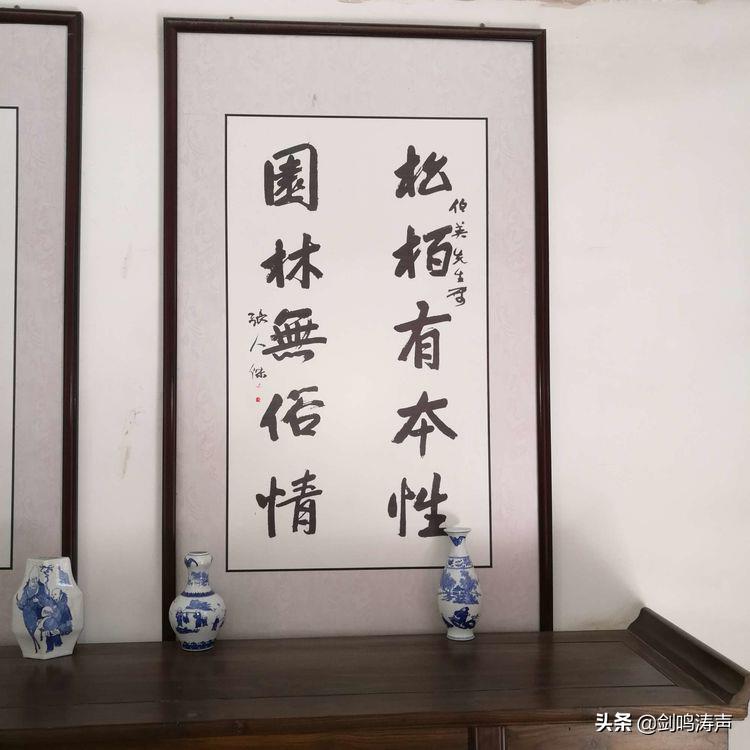 松柏有本性
伯英先生屬
園林無俗情
張人傑
头条 @剑鸣涛声